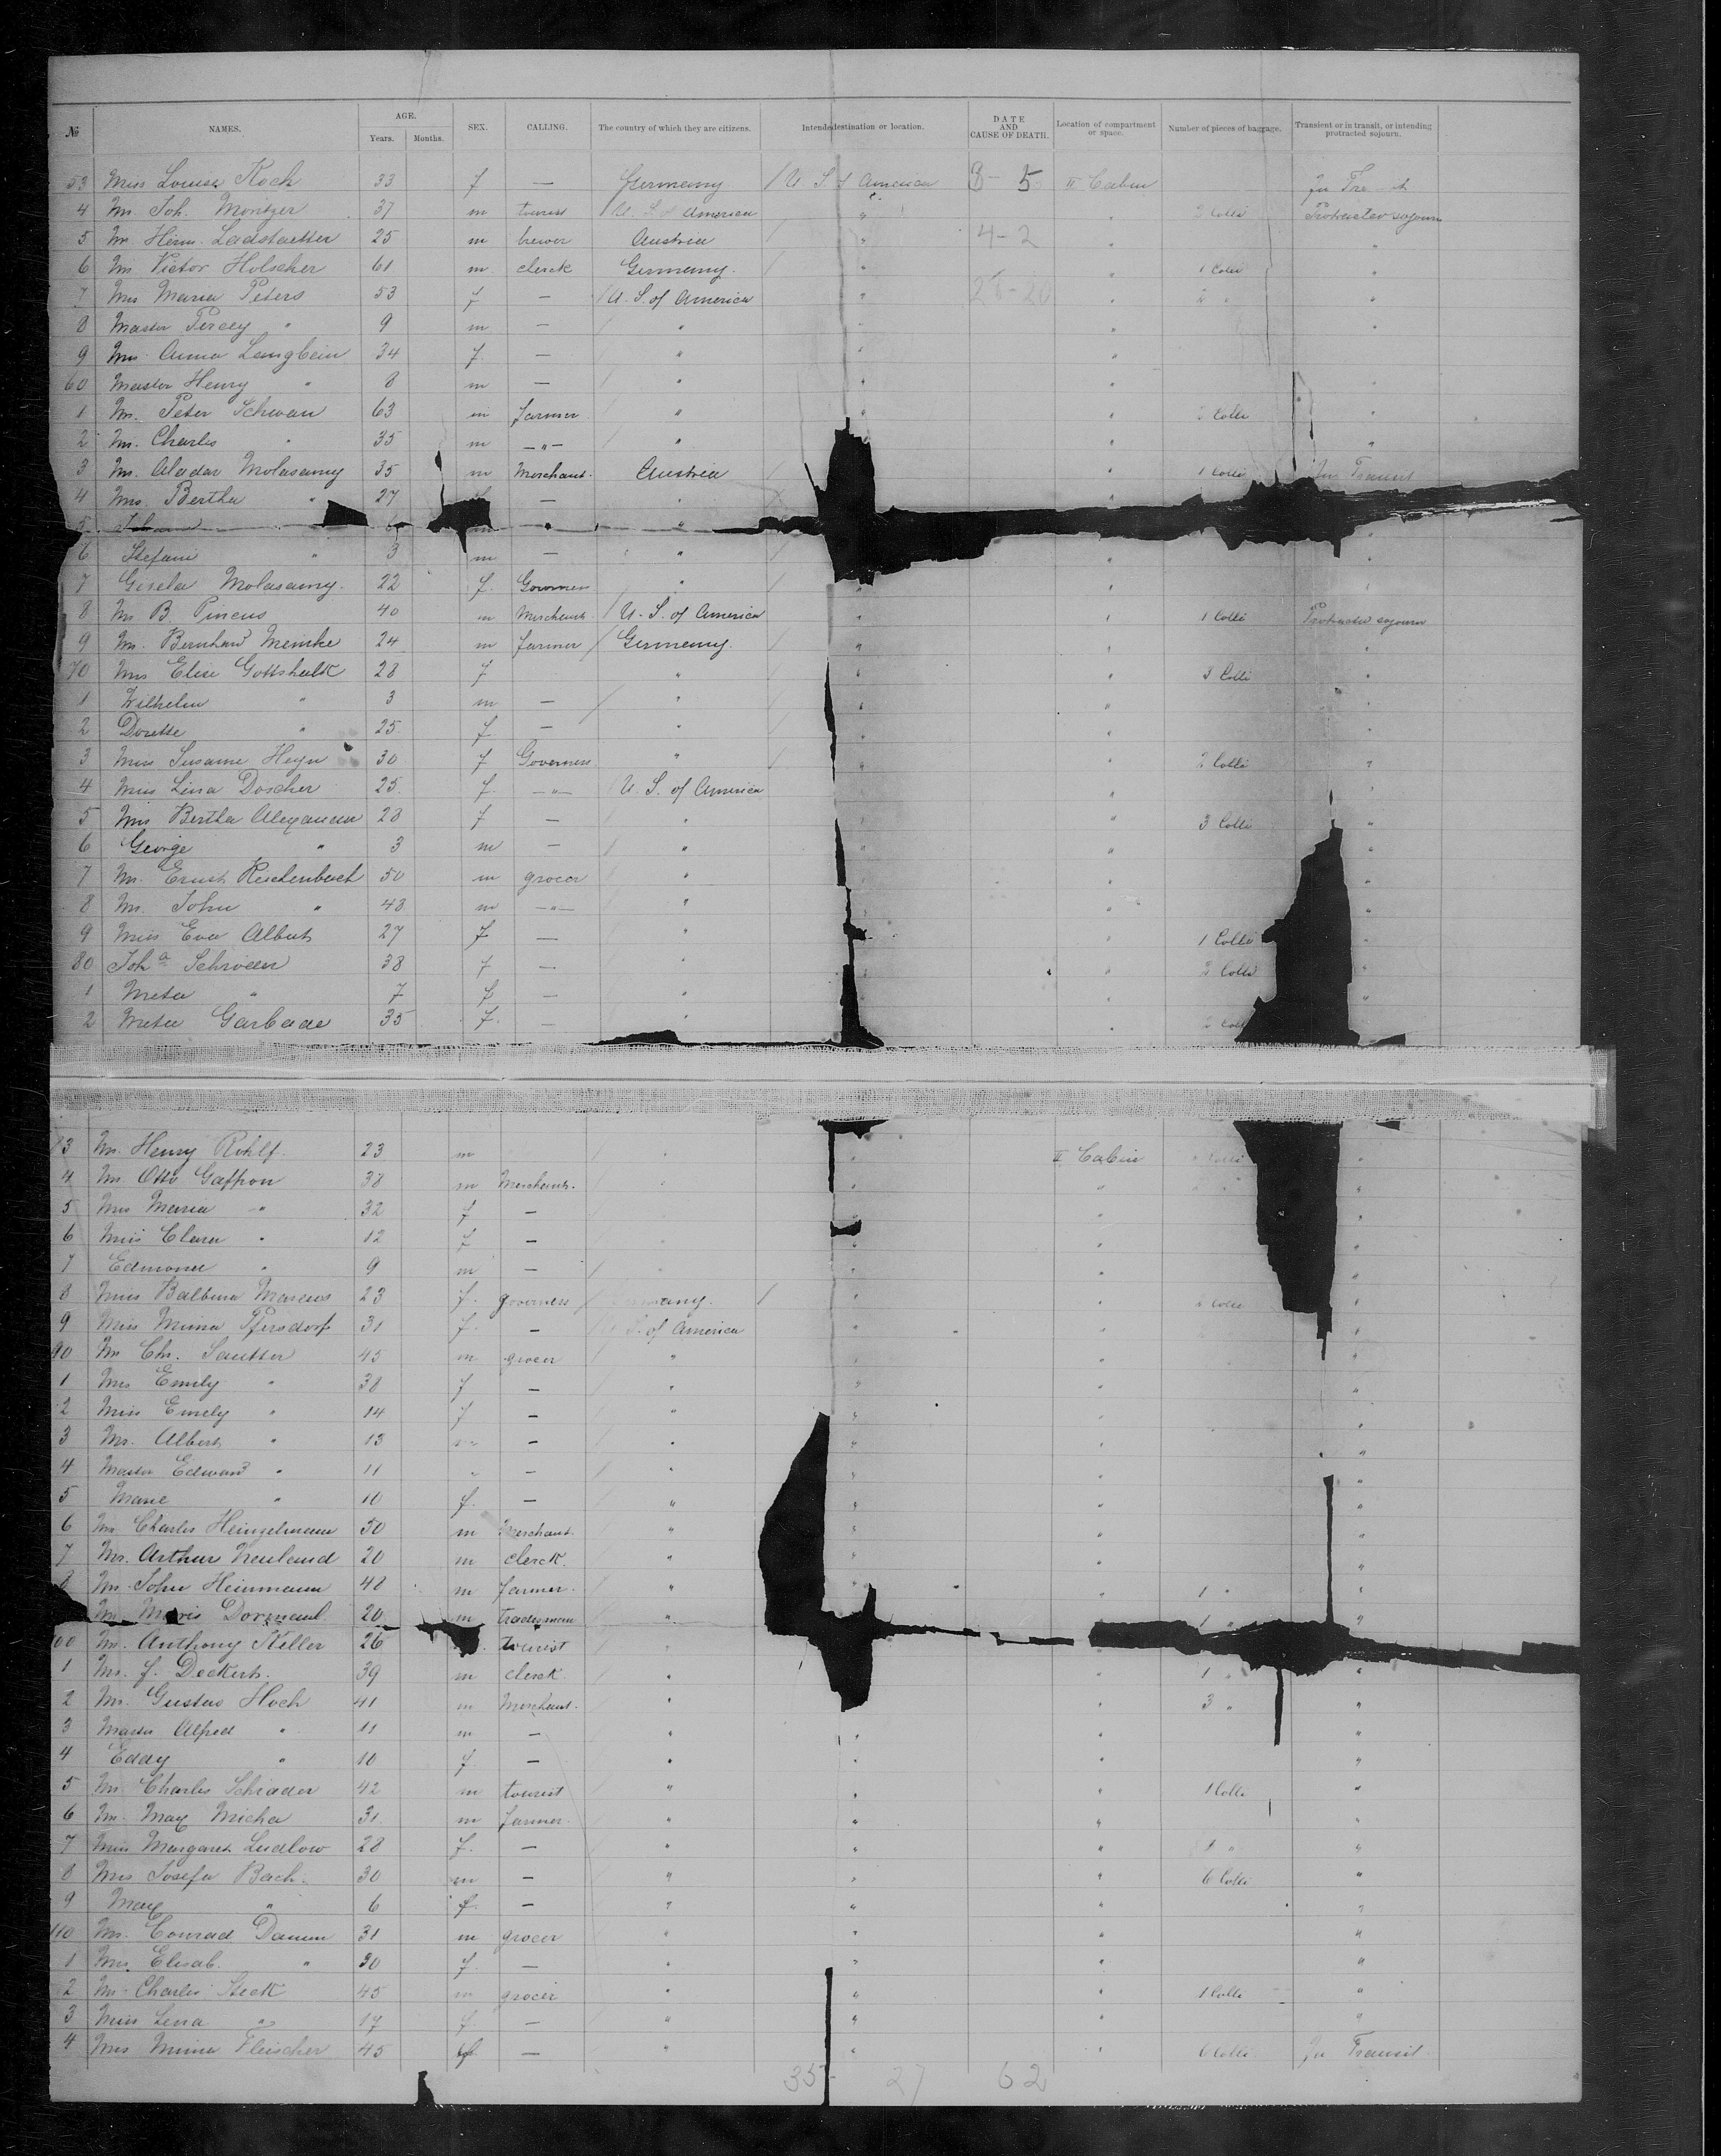 № NAMES. AGE. Years. Months. SEX. CALLING. The country of which they are citizens. Intende destination or location. DATE AND CAUSE OF DEATH. Location of compartment or space. Number of pieces of baggage. Transient or in transit, or intending protracted sojourn.
53 Miss Louise Koch 33 f — Germany / U S of America 8 - 5 II Cabin In
4 Mr. Joh. Moritzer 37 m tourist / U. S. of America " " 2 Colli Protracted sojourn
5 Mr Herm. Ladstaetter 25 m brewer Austria / " 4 - 2 " "
6 Mr Victor Holscher 61 m clerck Germany. / " " 1 Colli "
7 Mrs Maria Peters 53 f — / U. S. of America " 28-20 " 2 " "
8 Master Percy " 9 m — " " " "
9 Mrs Anna Langbein 34 f. — " " "
60 Master Henry " 8 m — " " "
1 Mr. Peter Schwan 63 m farmer " " " 2 Colli "
2 Mr. Charles " 35 m —"— " " "
3 Mr. Aladar Molasamy 35 m Merchant. Austria / " 1 Colli In Transit
4 Mrs. Bertha " 27 — "
5 6 m "
6 Stefani " 3 m — " / " "
7 Gisela Molasamy. 22 f. " / " "
8 Mr. B. Pincus 40 m Merchant / U. S. of America " " 1 Colli Protracted sojourn
9 Mr. Bernhard Meinke 24 m farmer / Germany. / " " "
70 Mrs Elise Gottshalk 28 f " " " 3 Colli "
1 Wilhelm " 3 m — / " / " "
2 Dorette " 25 f — " " "
3 Miss Susanne Heyn 30 f Governess " / " " 2 Colli "
4 Miss Lina Doscher 25. f. —"— / U. S. of America " "
5 Mrs Bertha 28 f — " " 3 Colli "
6 George " 3 m — " " "
7 Mr. Ernst Reichenbach 50 m grocer " " "
8 Mr. John " 48 m —"— " " "
9 Miss Eva Albert 27 f — " " 1 Colli
80 Joha Schröder 38 f — " " 2 Colli "
1 Meta " 7 f — " " "
2 Meta Garbade 35 f. — " " 2 "
83 Mr. Henry Rohlf. 23 m " " II Cabin "
4 Mr. Otto Gaffron 38 m Merchant. " " " "
5 Mrs Maria " 32 f — " "
6 Miss Clara " 12 f — " " "
7 Edmond " 9 m — " " " "
8 Miss Balbina Marcus 23 f. governess / / " " 2 Colli "
9 Miss Minna Pfersdorf 31 f. — S. of America " " "
90 Mr Chr. Sautter 45 m grocer " " " "
1 Mrs Emily " 38 f — " " " "
2 Miss Emely " 14 f — " " " "
3 Mr. Albert " 13 — " " " "
4 Master Edward " 11 " — " " " "
5 Marie " 10 f. — " " " "
6 Mr Charles Heinzelmann 50 m Merchant. " " " "
7 Mr. Arthur Neuland 20 m clerck. " " " "
8 Mr. John Heinmann 48 m farmer. " " 1 " "
Dormaul 20 m tradesman " 1 " "
00 Mr. Anthony Keller 26 tourist "
1 Mr. J. Deckert. 39 m clerck " " 1 " "
2 Mr. Gustav Hoch 41 m Merchant. " " 3 " "
3 Master Alfred " 11 m — " " " "
4 Eddy " 10 f. — " " " "
5 Mr Charles Schrader 42 m tourist " " " 1 Colli "
6 Mr. Max Micha 31. m farmer " " " "
7 Miss Margaret Ludlow 28 f. — " " " "
8 Mrs Josefa Bach. 30 m — " " " 6 Colli "
9 Max " 6 f. — " " " "
110 Mr. Conrad Damm 31 m grocer " " " "
1 Mrs. Elisab. " 30 f. — " " " "
2 Mr Charles Steck 45 m grocer " " " 1 Colli "
3 Miss Lena " 17 f — " " " "
4 Mrs Minna Fleischer 45 f — " " " 6 Colli In Transit
35 - 27 62